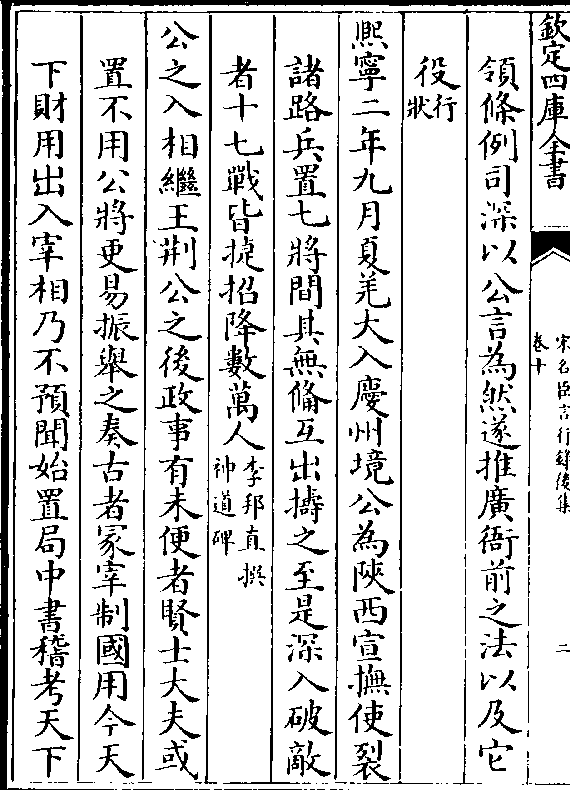 欽定四庫全書
宋名臣言行錄後集
卷十
二
領條例司深以公言為然遂推廣衙前之法以及它
役行狀
熙寧二年九月夏羌大入慶州境公為陜西宣撫使裂
諸路兵置七將間其無備互出擣之至是深入破敵
者十七戰皆捷招降數萬人李邦直撰神道碑
公之入相繼王荆公之後政事有未便者賢士大夫或
置不用公將更易振舉之奏古者冢宰制國用今天
下財用出入宰相乃不預聞始置局中書稽考天下